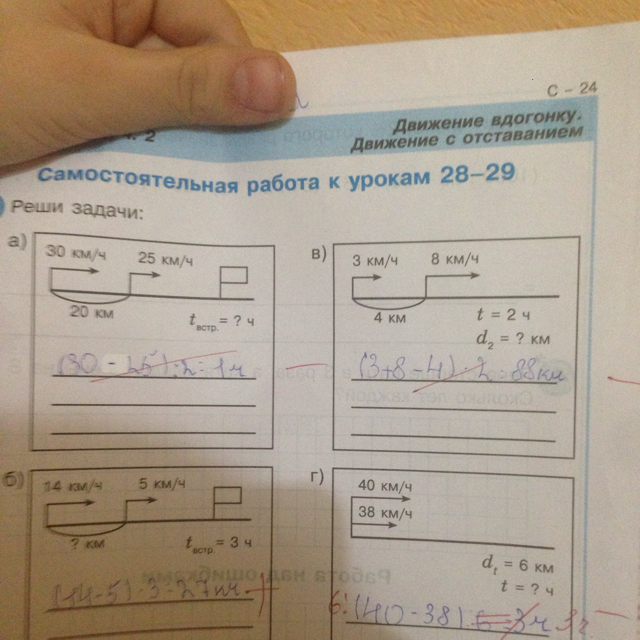 С – 24
Движение вдогонку.
Движение с отставанием
Самостоятельная работа к урокам 28–29
Реши задачи:
а)
30 км/ч 25 км/ч
20 км
tвстр. = ? ч
(30 - 25) : 2 = 1 ч
в)
3 км/ч 8 км/ч
4 км
t = 2 ч
d2 = ? км
(3+8-4) · 2 = 88 км
б)
14 км/ч 5 км/ч
? км
tвстр. = 3 ч
(14-5) · 3 = 27 км +
г)
40 км/ч
38 км/ч
d1 = 6 км
t = ? ч
6: (40-38) = 3ч 3ч
Работа над ошибками